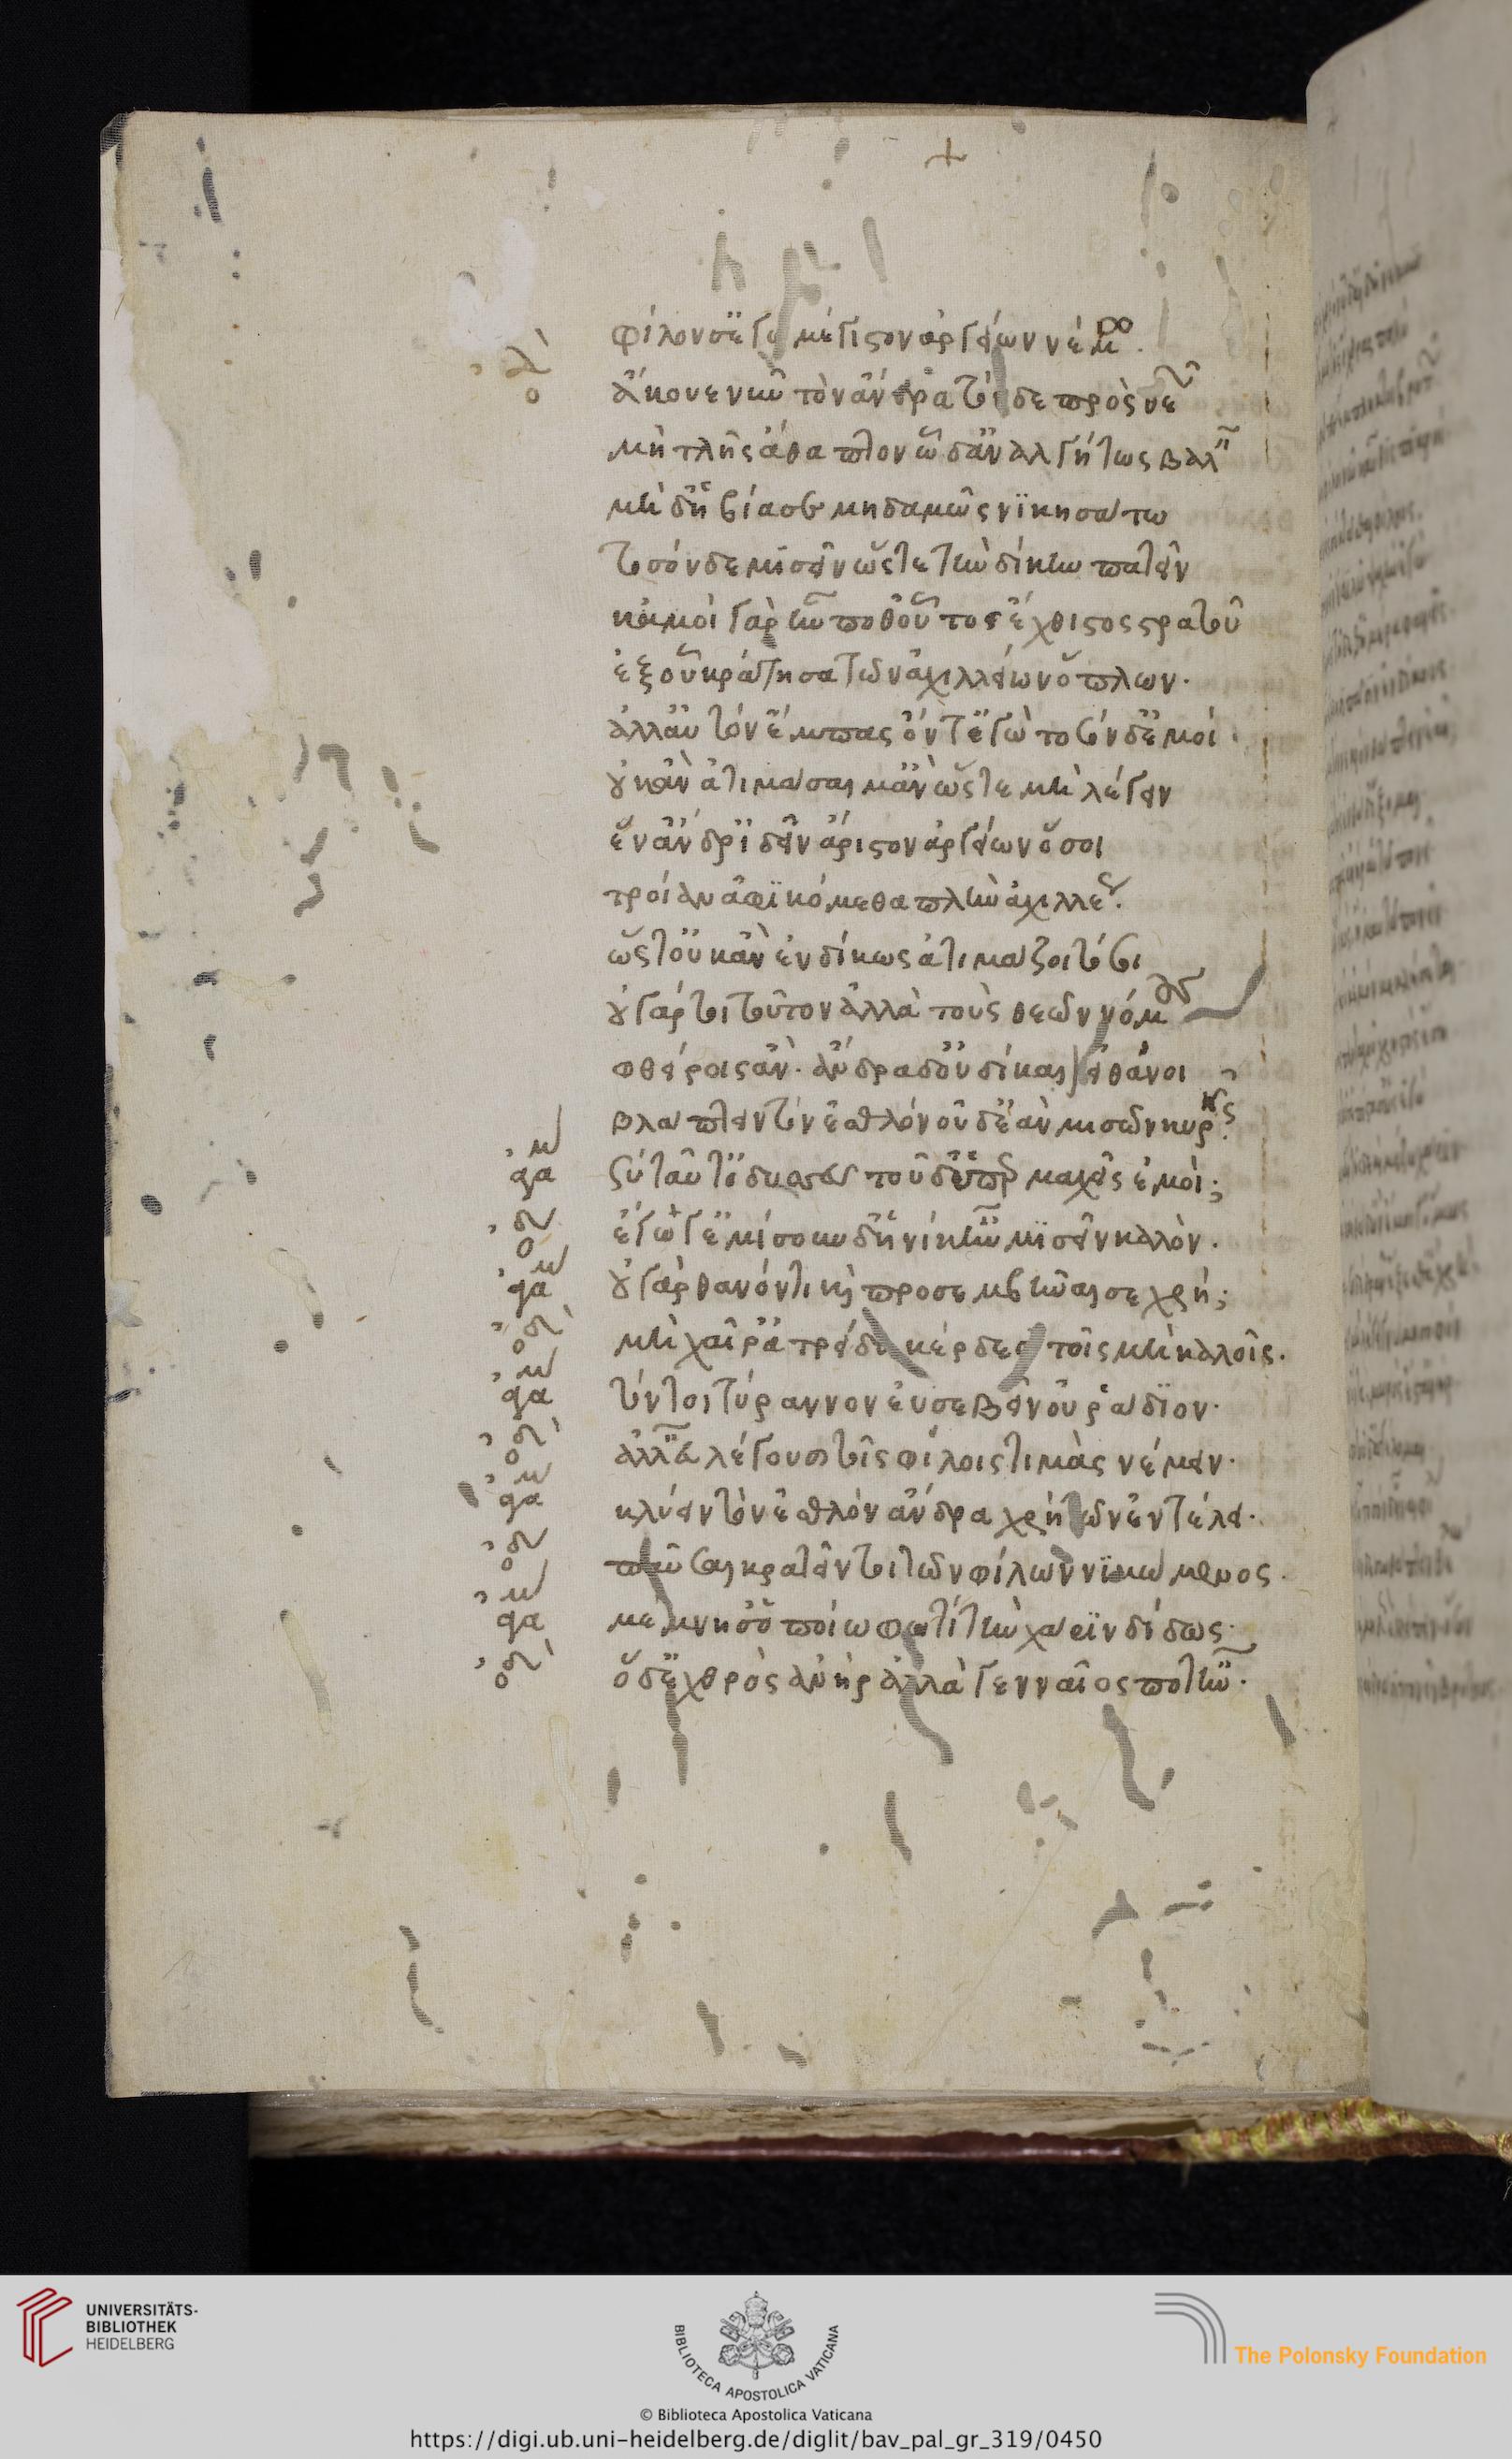 φίλον σ' ἐγὼ μέγιστον ἀργείων νέμω.
ὀδ ἄκουέ νυν τὸν ἄνδρα τόνδε πρὸς θεῶν
μὴ τλῇς ἄθαπτον ὧδ' ἀναλγήτως βαλεῖν
μὴ δ' ἡ βία σε μηδαμῶς νικησάτω
τοσόνδε μισεῖν ὥστε τὴν δίκην πατεῖν
κἀμοὶ γὰρ ἦν ποθ' οὗτος ἔχθιστος στρατοῦ
ἐξ οὗ κράτησα τῶν ἀχιλλείων ὅπλων.
ἀλλ' αὐτὸν ἔμπας ὄντ' ἐγὼ τοιόνδ' ἐμοί.
οὐκ ἂν ἀτιμάσαιμ' ἂν ὥστε μὴ λέγειν
ἕν' ἄνδρ' ἰδεῖν ἄριστον ἀργείων ὅσοι
τροίαν ἀφικόμεθα πλὴν ἀχιλλέως.
ὥστ' οὐκ ἂν ἐνδίκως ἀτιμάζοιτό σοι
οὐ γάρ τι τοῦτον ἀλλὰ τοὺς θεῶν νόμους
φθείροις ἄν. ἄνδρα δ' οὐ δίκαιον εἰ θάνοι
βλάπτειν τὸν ἐσθλὸν οὐδ' ἐὰν μισῶν κυρῇς.
ἀγα σὺ ταῦτ' ὀδυσσεῦ τοῦδ' ὑπερμαχεῖς ἐμοί;
ὀδ ἔγωγ' ἐμίσουν δ' ἡνίκ' ἦν μισεῖν καλόν.
ἀγα οὐ γὰρ θανόντι καὶ προσεμβῆναι σε χρή;
ὀδ μὴ χαῖρ' ἀτρείδη κέρδεσι τοῖς μὴ καλοῖς.
ἀγα τόν τοι τύραννον εὐσεβεῖν οὐ ῥάδιον.
ὀδ ἀλλ' εὖ λέγουσι τοῖς φίλοις τιμὰς νέμειν.
ἀγα κλύειν τὸν ἐσθλὸν ἄνδρα χρὴ τῶν ἐν τέλει.
ὀδ παῦσαι κρατεῖς τοι τῶν φίλων νικώμενος.
ἀγα μέμνησ' ὁποίῳ φωτὶ τὴν χάριν δίδως.
ὀδ ὅδ' ἐχθρὸς ἀνὴρ ἀλλὰ γενναῖος ποτ' ἦν.
UNIVERSITÄTS-
BIBLIOTHEK
HEIDELBERG
BIBLIOTECA APOSTOLICA VATICANA
The Polonsky Foundation
© Biblioteca Apostolica Vaticana
https://digi.ub.uni-heidelberg.de/diglit/bav_pal_gr_319/0450